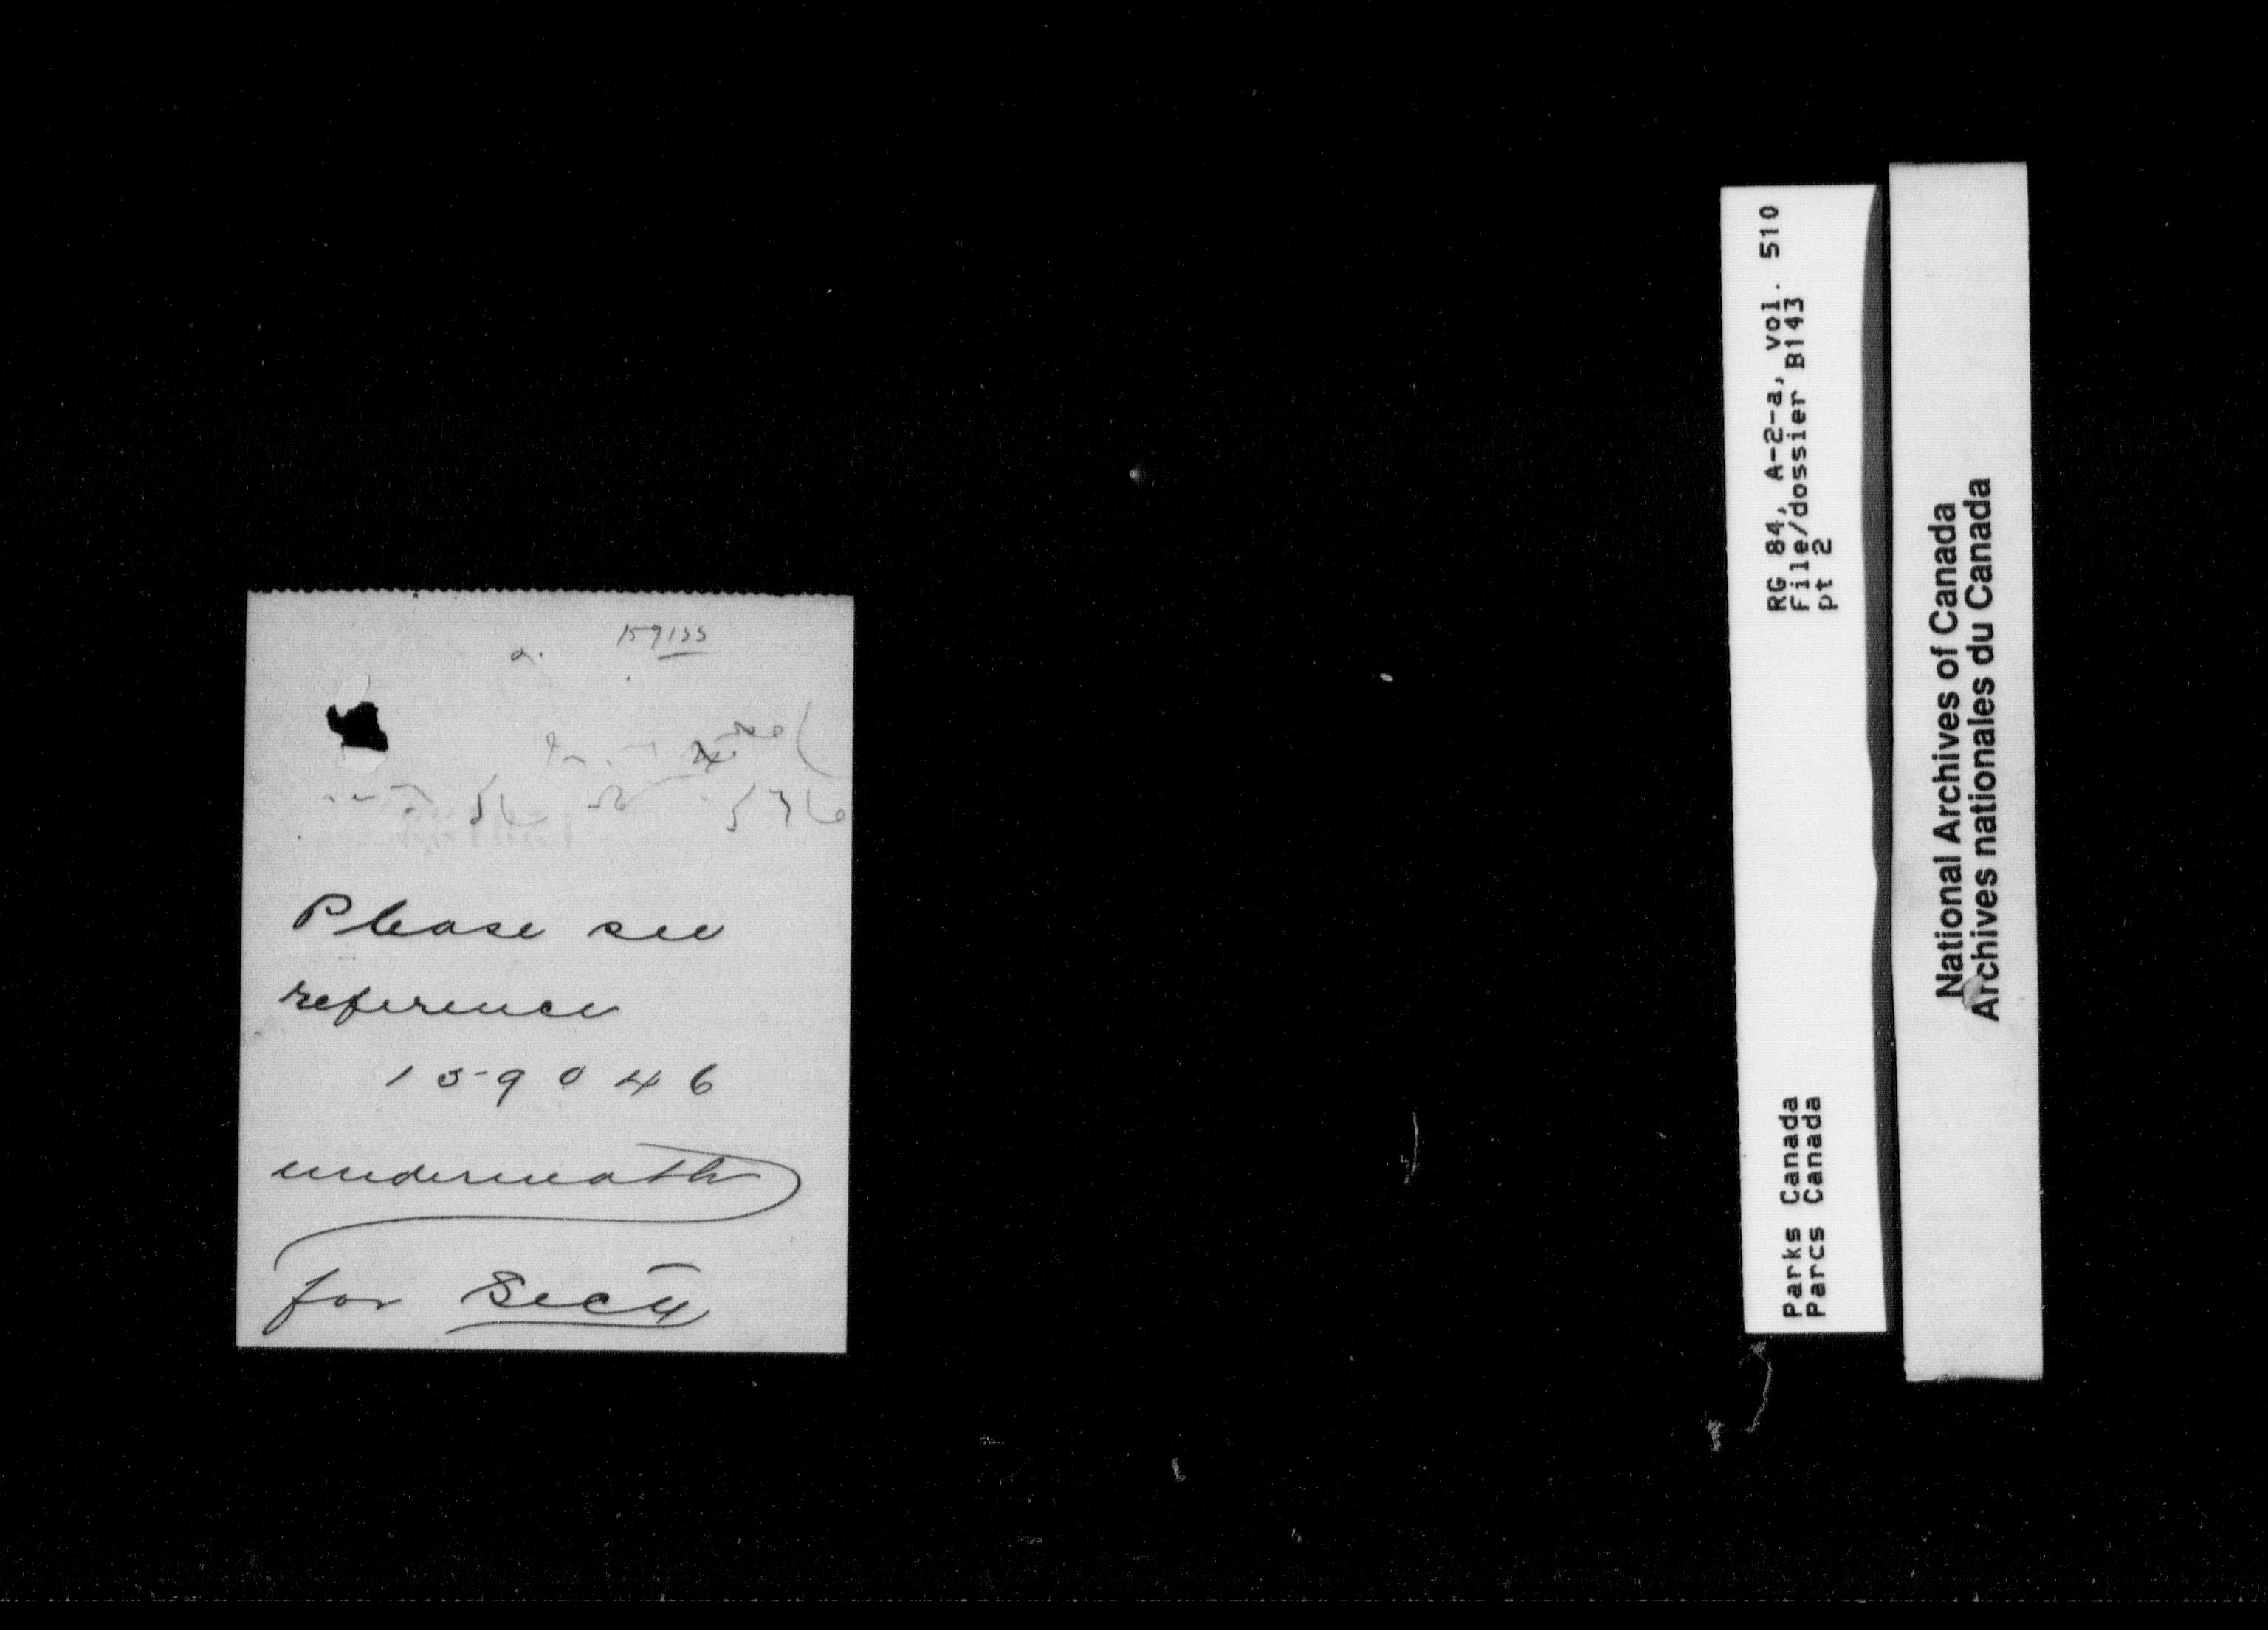 159155
Please see
reference
159046
underneath
for Secy
RG 84, A-2-a, vol. 510
File/dossier B143
pt 2
Parks Canada
Parcs Canada
National Archives of Canada
Archives nationales du Canada